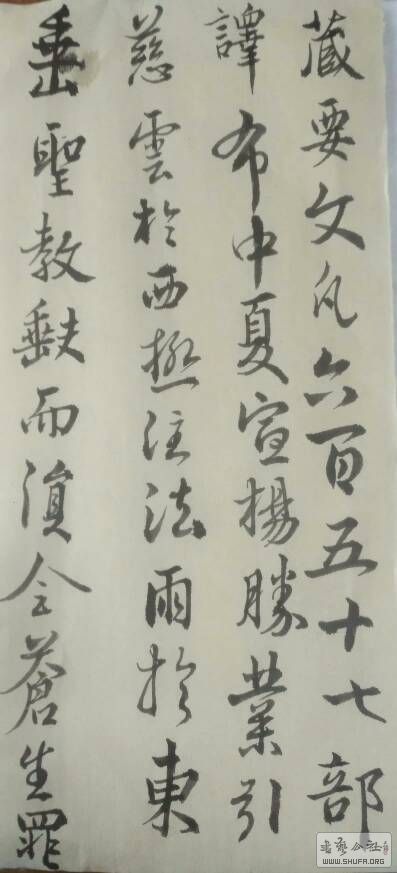 藏要文凡六百五十七部
譯布中夏宣揚勝業引
慈雲於西極注法雨於東
垂聖教缺而復全蒼生罪
书艺公社
WWW.SHUFA.ORG